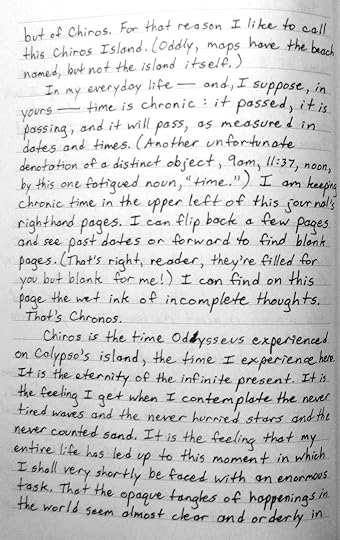 but of Chiros. For that reason I like to call
this Chiros Island. (Oddly, maps have the beach
named, but not the island itself.)
In my everyday life — and, I suppose, in
yours — time is chronic: it passed, it is
passing, and it will pass, as measured in
dates and times. (Another unfortunate
denotation of a distinct object, 9am, 11:37, noon,
by this one fatigued noun, "time.") I am keeping
chronic time in the upper left of this journal's
righthand pages. I can flip back a few pages
and see past dates or forward to find blank
pages. (That's right, reader, they're filled for
you but blank for me!) I can find on this
page the wet ink of incomplete thoughts.
That's Chronos.
Chiros is the time Oddysseus experienced
on Calypso's island, the time I experience here.
It is the eternity of the infinite present. It is
the feeling I get when I contemplate the never
tired waves and the never hurried stars and the
never counted sand. It is the feeling that my
entire life has led up to this moment in which
I shall very shortly be faced with an enormous
task. That the opaque tangles of happenings in
the world seem almost clear and orderly in